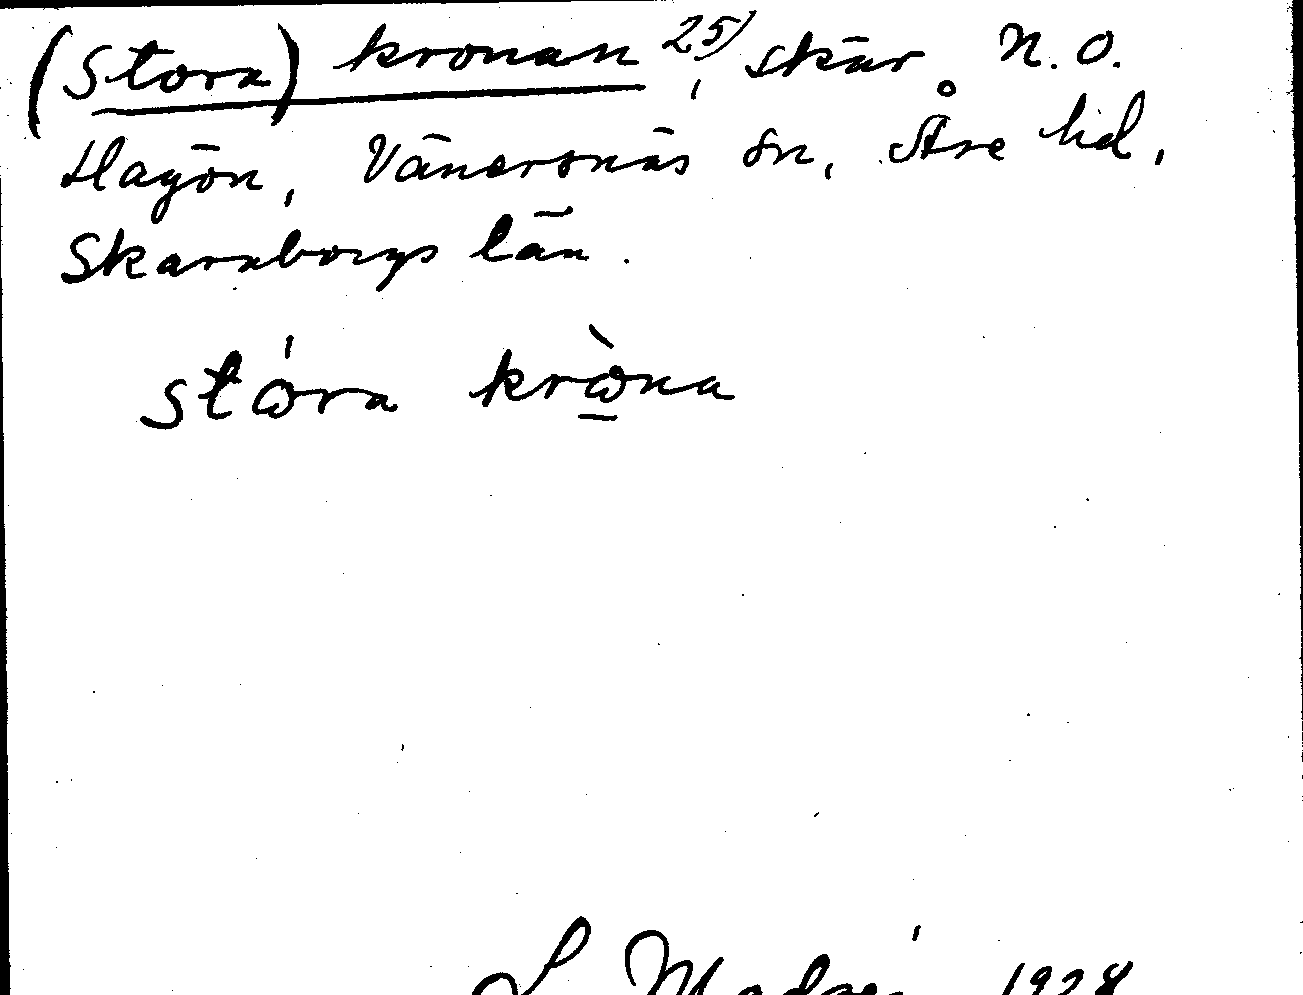 (Stora) kronan 25), skär N.O.
Hagön, Vänersnäs sn, Åse hd,
Skaraborgs län.
stɷ́ra krɷ̱̀na
1928